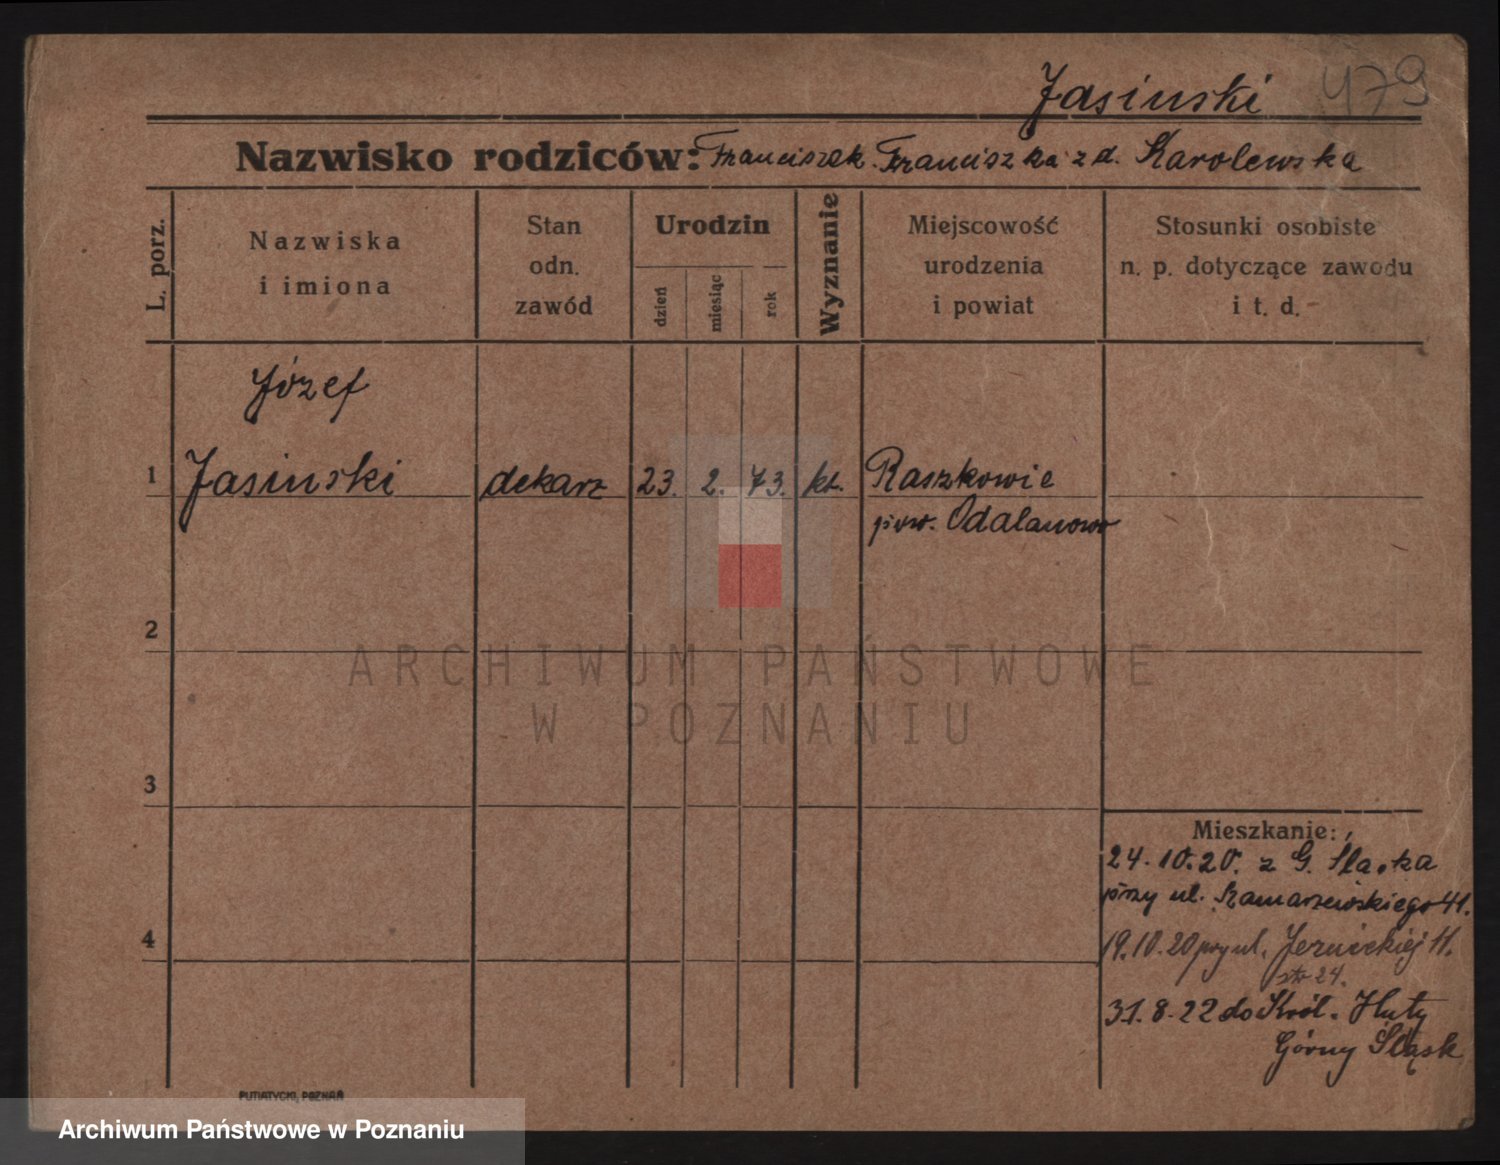 Jasinski 479
Nazwisko rodziców: Franciszek. Franciszka z d. Karolewska
L. porz.
Nazwiska
i imiona
Stan
odn.
zawód
Urodzin
dzień
miesiąc
rok
Wyznanie
Miejscowość
urodzenia
i powiat
Stosunki osobiste
n. p. dotyczące zawodu
i t. d.
Józef
1 Jasinski dekarz 23. 2. 73. kt. Raszkowie
pow. Odalanowo
2
ARCHIWUM PAŃSTWOWE
W POZNANIU
3
Mieszkanie:
24.10.20. z G. Slaska
przy ul. 41.
4
19.10.20 przy ul. 11.
str 24.
31.8.22 do Król. Huty
Górny Śląsk
PUTIATYCKI, POZNAŃ
Archiwum Państwowe w Poznaniu